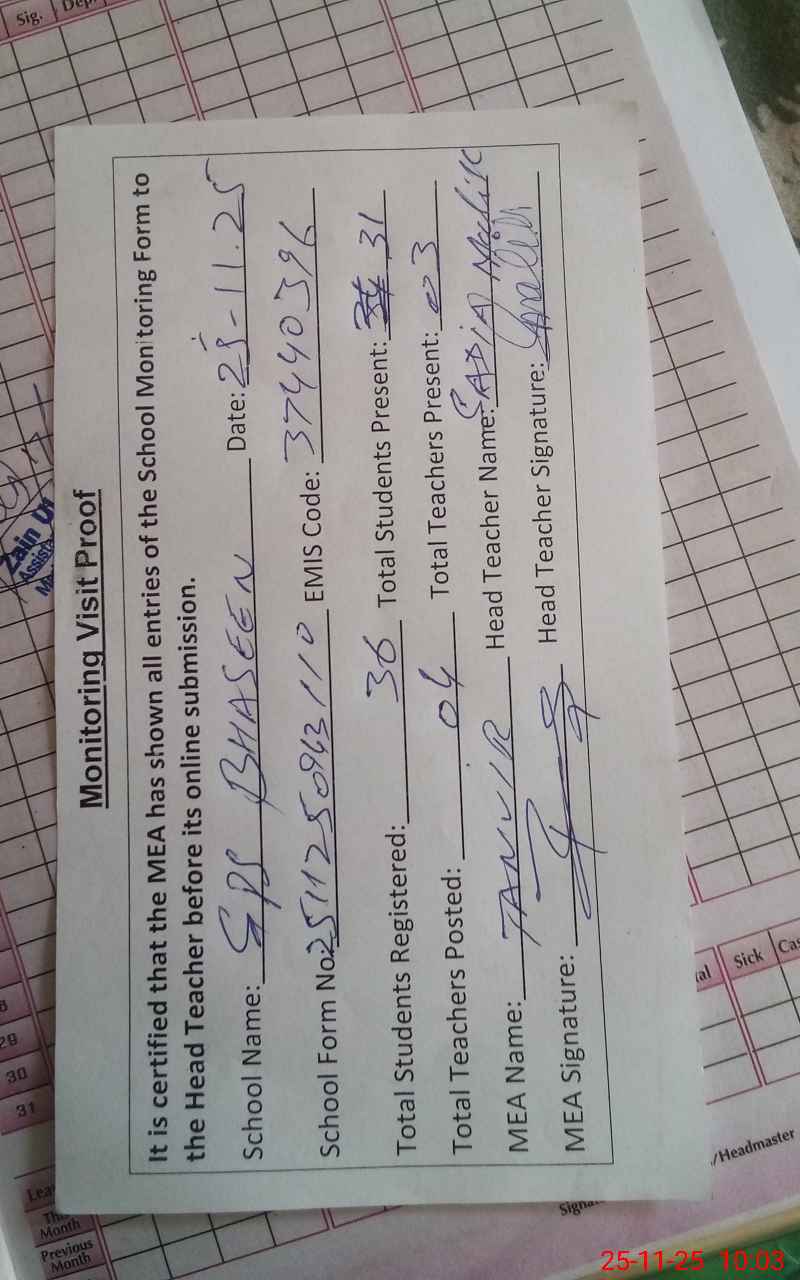 Sig.
Monitoring Visit Proof
It is certified that the MEA has shown all entries of the School Monitoring Form to
the Head Teacher before its online submission.
School Name: GPS BHASEEN Date: 25-11.25
School Form No: 2511250943110 EMIS Code: 37440396
Total Students Registered: 36 Total Students Present: 31
Total Teachers Posted: 04 Total Teachers Present: 03
MEA Name: TANVIR Head Teacher Name: SADIA Malik
MEA Signature: Head Teacher Signature:
Zain
29
30
31
Month
Previous
Month
Sick
/Headmaster
25-11-25 10:03